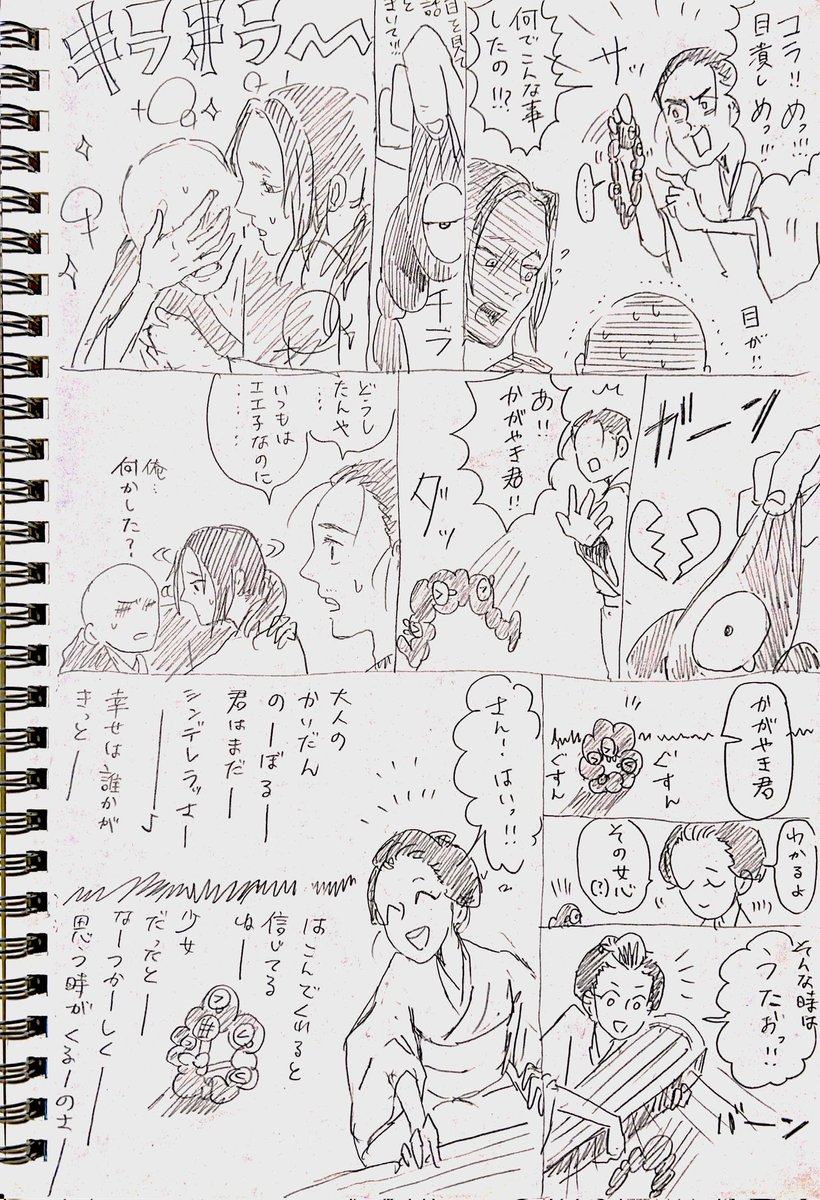 コラ!!めっ!!!
目潰しめっ!!!
サッ
……
目が!!
何でこんな事
したの!!?
目を見て
きいて!!!
チラ
キラキラ〜
ガーン
あ!!
かがやき君!!
ダッ
どうし
たんや
……
いつもは
エエ子なのに
……
俺…
何かした?
かがやき君
ぐすん
ぐすん
わかるよ
その女心
(?)
そんな時は
うたおっ!!
バーン
さんーはいっ!!
大人の
かいだん
のーぼるー
君はまだー
シンデレラッさー
♪
幸せは誰かが
きっとー
はこんでくれると
信じてる
ねー
少女
だったとー
なーつかーしくー
思つ時がくるーのさー